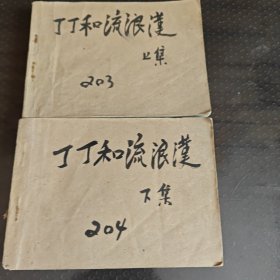 丁丁和流浪漢
上集
203
丁丁和流浪漢
下集
204